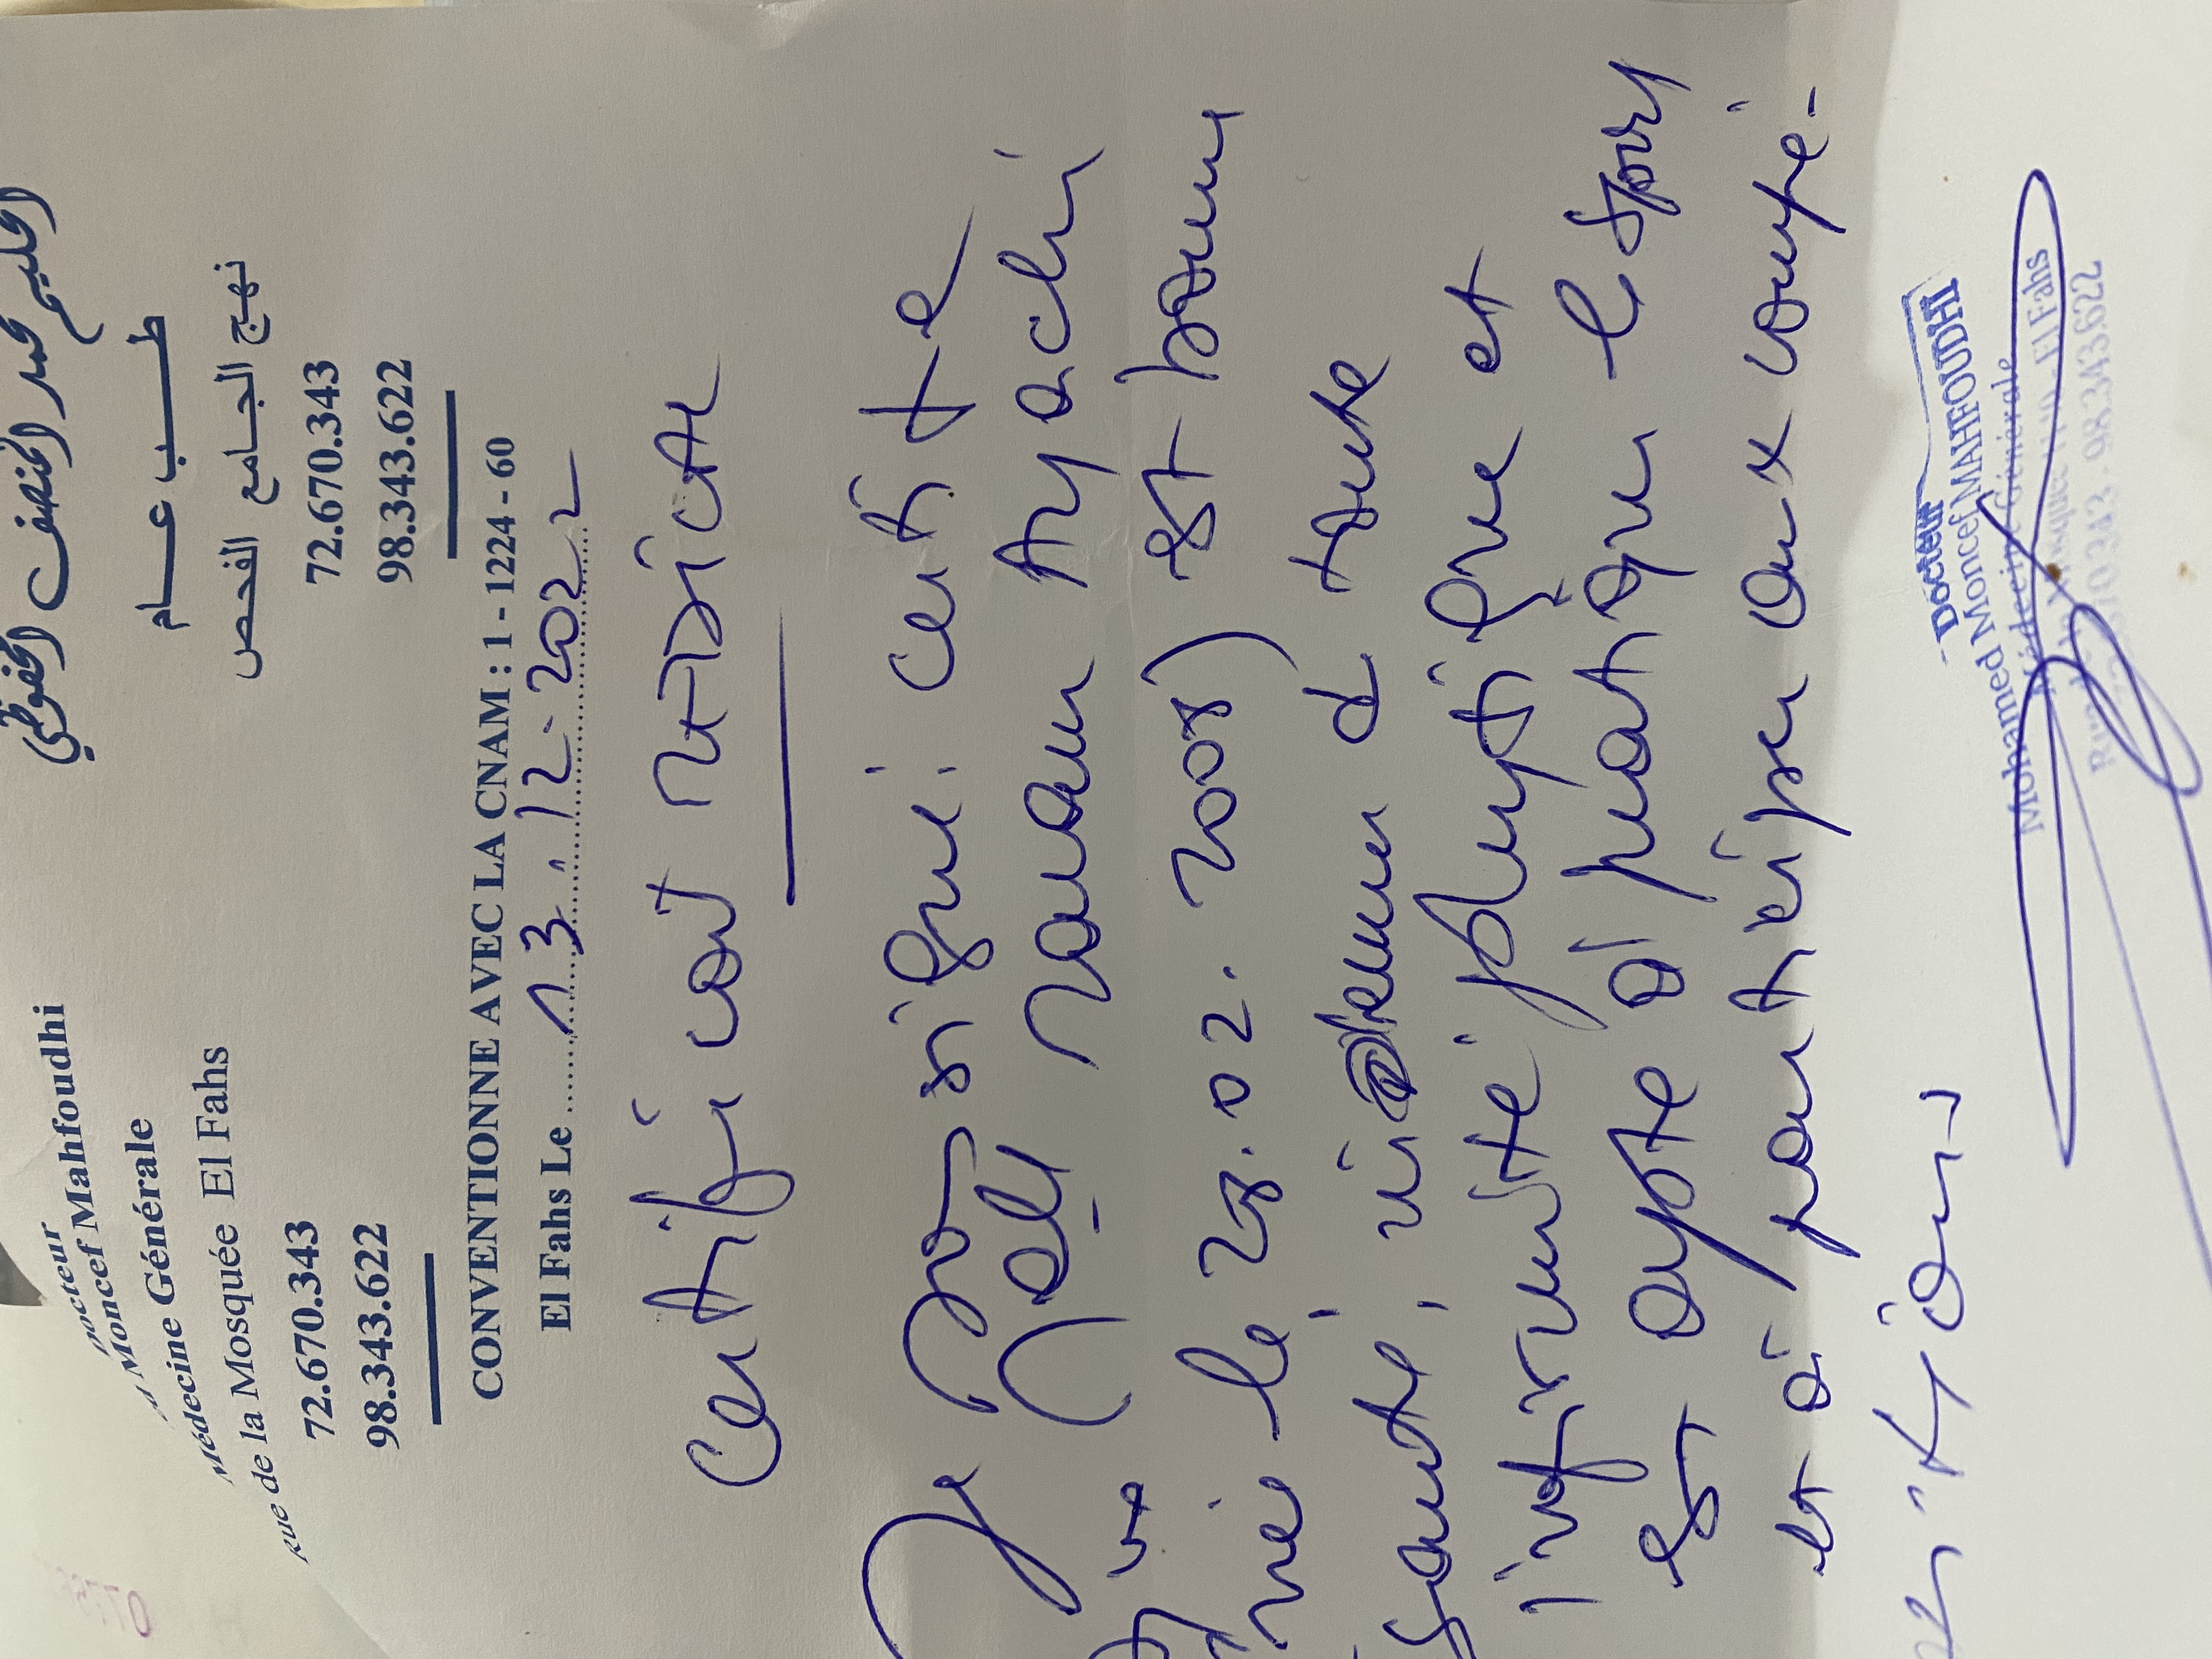 Docteur
Moncef Mahfoudhi
Médecine Générale
Rue de la Mosquée El Fahs
72.670.343
98.343.622
الحكيم محمد المنصف المحفوظي
طب عام
نهج الجامع الفحص
72.670.343
98.343.622
CONVENTIONNE AVEC LA CNAM : 1 - 1224 - 60
El Fahs Le 13.12.2022
Certificat médical
Je soussigné certifie
que Ayachi
née le 28.02.2008) est
de toute
infirmité physique et
est apte à pratiquer le sport
et à participer aux compé-
titions
Docteur
Mohamed Moncef MAHFOUDHI
Médecine Générale
Rue de la Mosquée 1140 - El Fahs
72.670.343 - 98.343.622